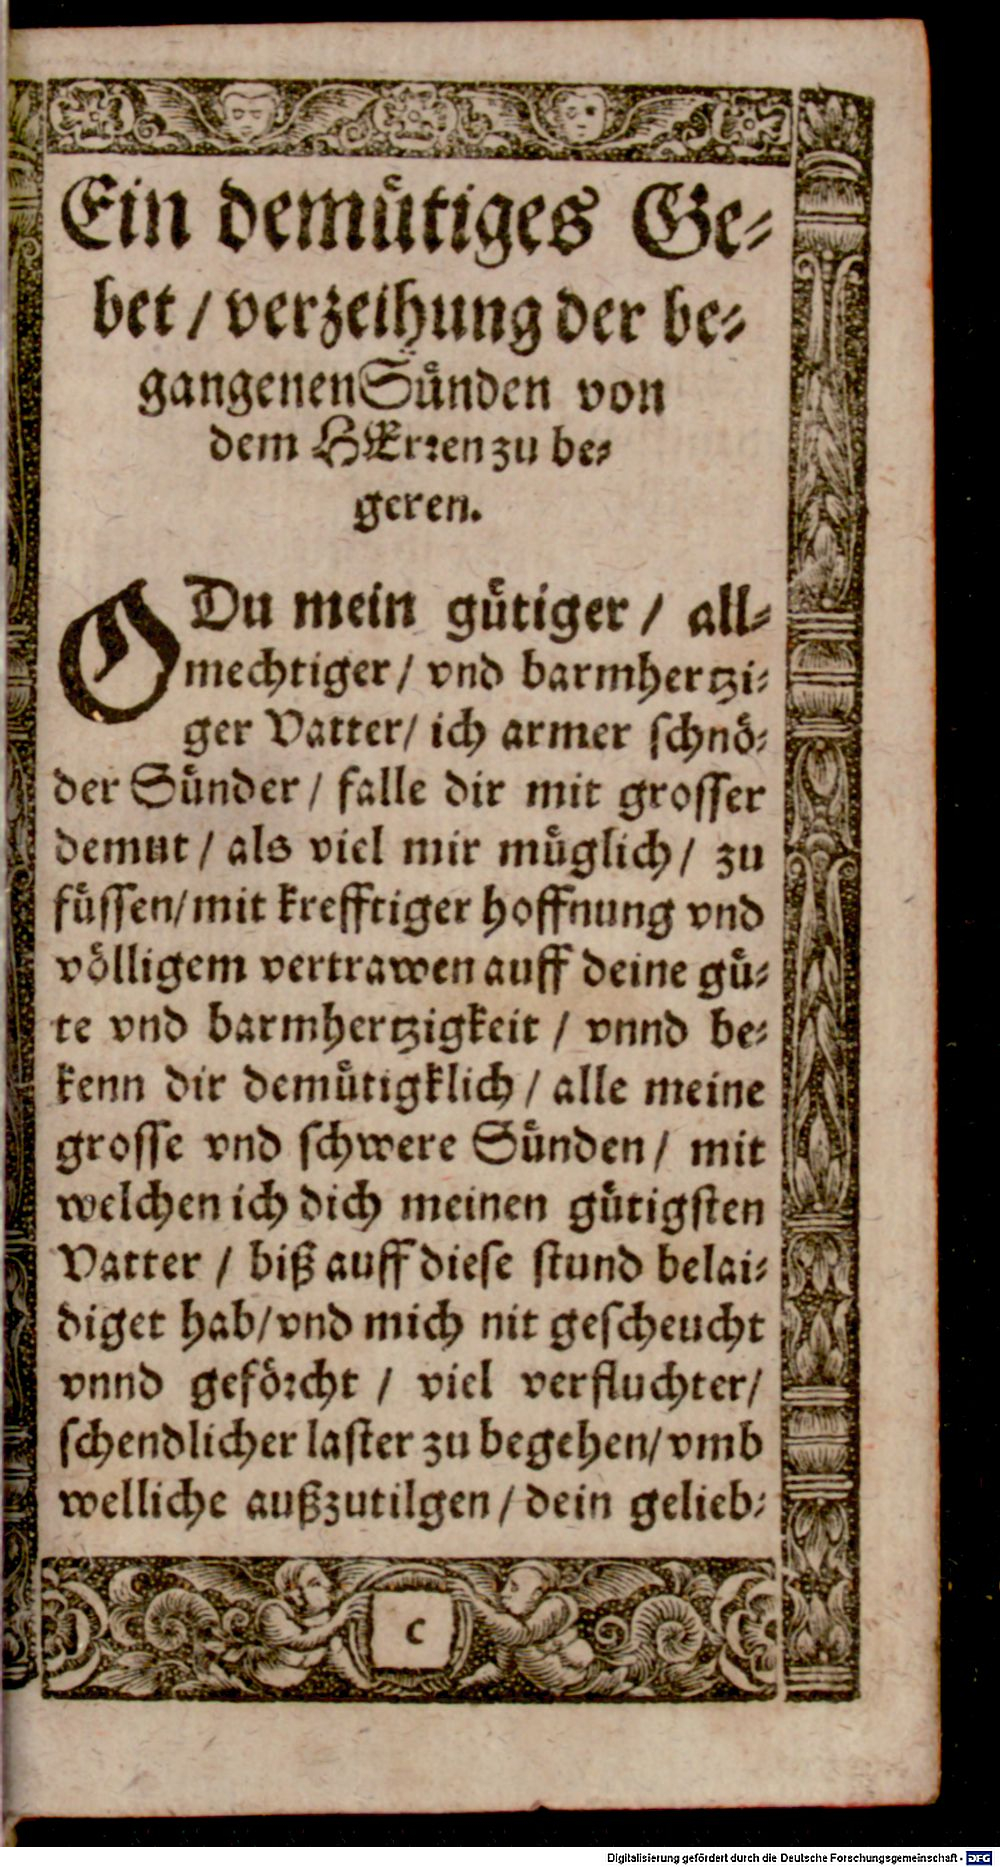 Ein demuͤtiges Ge⸗
bet / verzeihung der be⸗
gangenen Suͤnden von
dem HErꝛen zu be⸗
geren.
O Du mein guͤtiger / all⸗
mechtiger / vnd barmhertzi⸗
ger Vatter / ich armer schnoͤ⸗
der Suͤnder / falle dir mit grosser
demut / als viel mir muͤglich / zu
fuͤssen / mit krefftiger hoffnung vnd
voͤlligem vertrawen auff deine guͤ⸗
te vnd barmhertzigkeit / vnnd be⸗
kenn dir demuͤtigklich / alle meine
grosse vnd schwere Suͤnden / mit
welchen ich dich meinen guͤtigsten
Vatter / biß auff diese stund belai⸗
diget hab / vnd mich nit gescheucht
vnnd gefoͤꝛcht / viel verfluchter /
schendlicher laster zu begehen / vmb
welliche außzutilgen / dein gelieb⸗
c
Digitalisierung gefördert durch die Deutsche Forschungsgemeinschaft - DFG